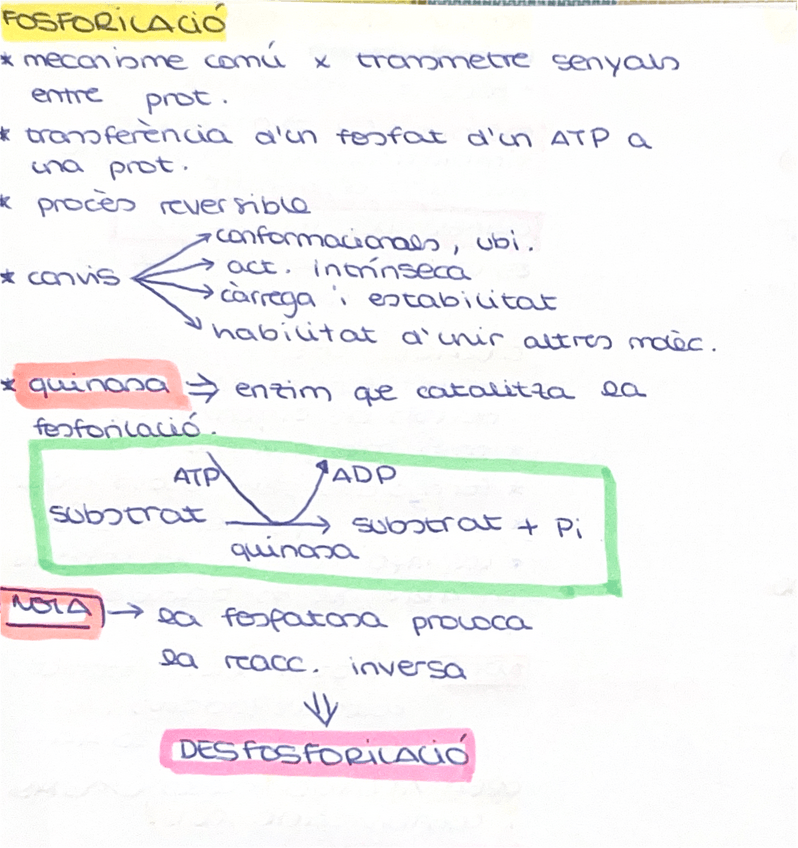 FOSFORILACIÓ
* mecanisme comú x transmetre senyals
entre prot.
* transferència d'un fosfat d'un ATP a
una prot.
* procès reversible
conformacionals, ubi.
* canvis → act. intrínseca
→ càrrega i estabilitat
habilitat d'unir altres molèc.
* quinasa ⇒ enzim que catalitza la
fosforilació.
ATP ADP
substrat → substrat + Pi
quinasa
NOTA → la fosfatasa provoca
la reacc. inversa
⇓
DESFOSFORILACIÓ